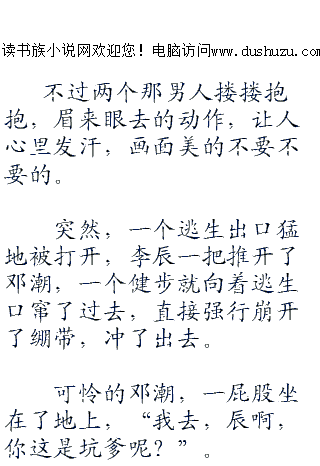 读书族小说网欢迎您！电脑访问www.dushuzu.com
不过两个那男人搂搂抱
抱，眉来眼去的动作，让人
心里发汗，画面美的不要不
要的。
突然，一个逃生出口猛
地被打开，李辰一把推开了
邓潮，一个健步就向着逃生
口窜了过去，直接强行崩开
了绷带，冲了出去。
可怜的邓潮，一屁股坐
在了地上，“我去，辰啊，
你这是坑爹呢？”。